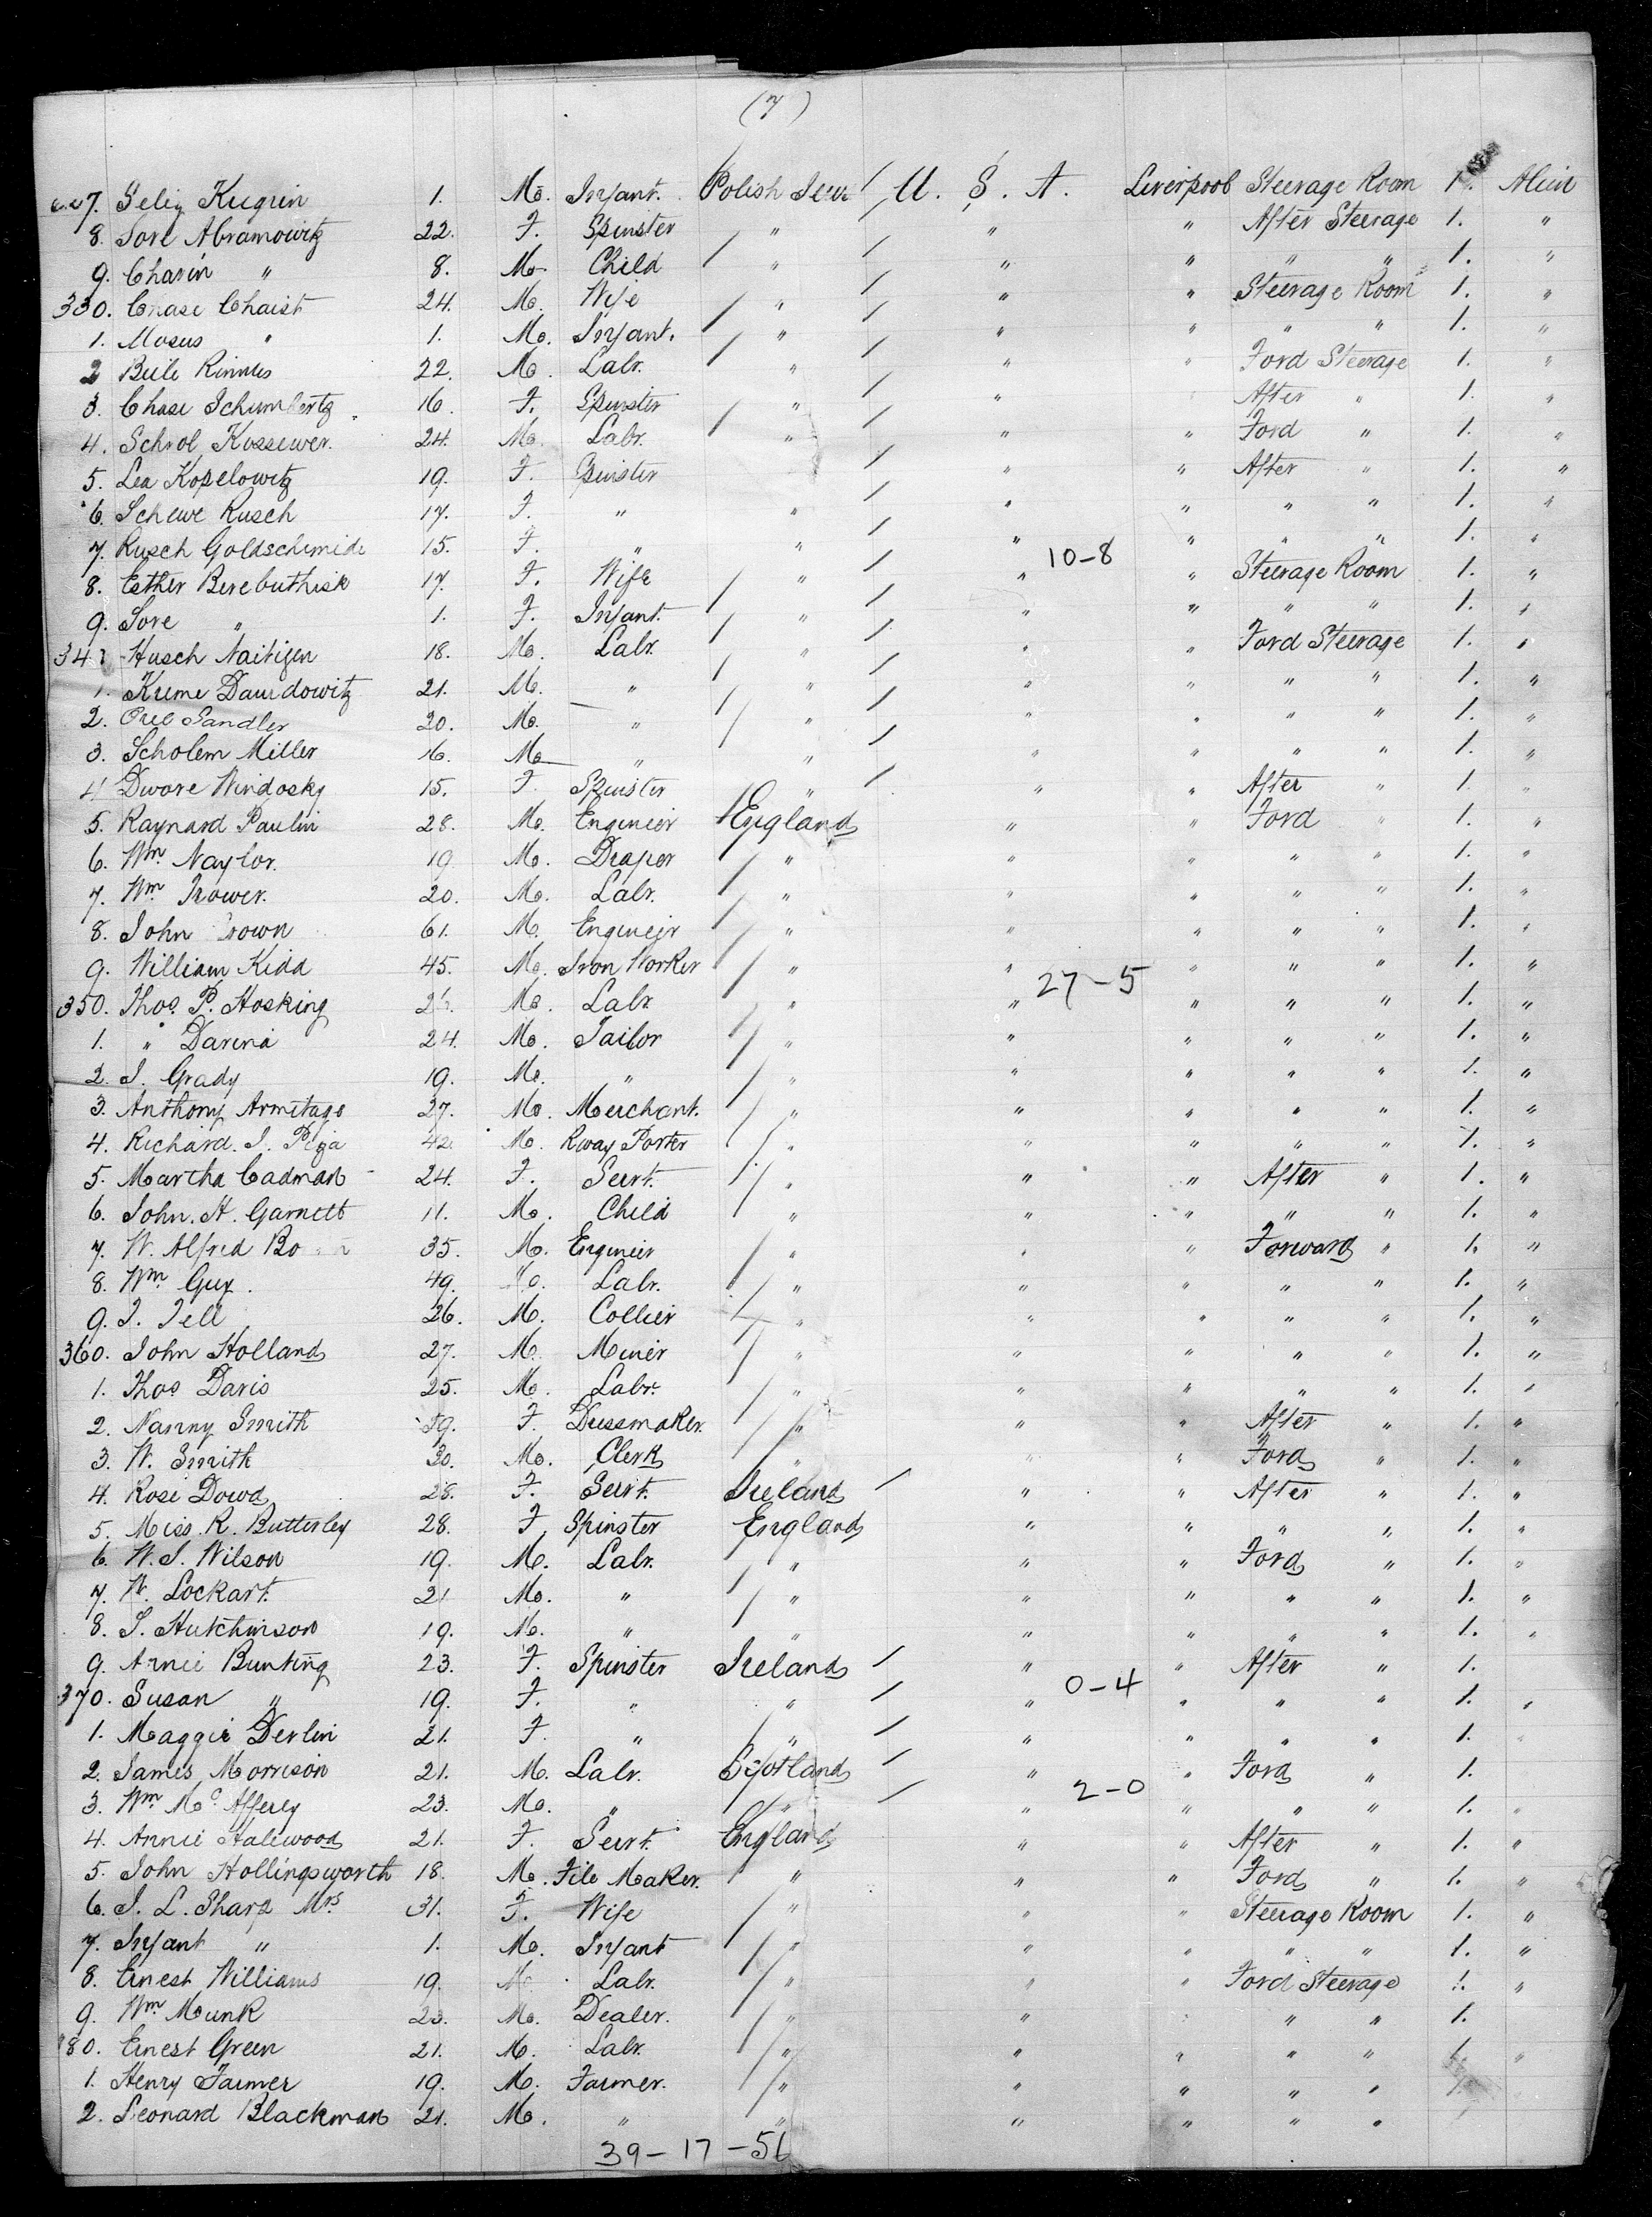 (7)
7. Selig Kugrin 1. M. Infant. Polish Jew / U. S. A. Liverpool Steerage Room 1. Alien
8. Sore Abramowitz 22. F. Spinster / " / " " After Steerage 1. "
9. Charin " 8. M. Child / " / " " " " 1. "
330. Chase Chaist 24. M. Wife / " / " " Steerage Room 1. "
1. Moses " 1. M. Infant. / " / " " " " 1. "
2 Beile Rinnles 22. M. Labr. / " / " " Ford Steerage 1. "
3. Chase Schumbertz 16. F. Spinster / " / " After " 1. "
4. Schrol Kossewer. 24. M. Labr. / " / " " Ford " 1. "
5. Lea Kopelowitz 19. F. Spinster / " " After " 1. "
6. Schewe Rusch 17. F. " " / " " " " 1. "
7. Rusch Goldschmide 15. F. " " / " 10-8 " " " 1. "
8. Esther Berebuthisk 17. F. Wife / " / " " Steerage Room 1. "
9. Sore " 1. F. Infant. / " / " " " " 1. "
34 Husch Naitigen 18. M. Labr. / " / " " Ford Steerage 1. "
1. Kume Daudowitz 21. M. " / " / " " " " 1. "
2. Orel Sandler 20. M. " / " / " " " " 1. "
3. Scholem Miller 16. M. " " / " " " " 1. "
4 Dwore Windosky 15. F. Spinster " / " " After " 1. "
5. Raynard Paulin 28. M. Engineer / England " " Ford " 1. "
6. Wm Naylor. 19 M. Draper / " " " " " 1. "
7. Wm Trower. 20. M. Labr. / " " " " " 1. "
8. John rown 61. M. Engineer / " " " " " 1. "
9. William Kidd 45. M. Iron Worker / " " 27-5 " " " 1. "
350. Thos P. Hosking 2 M. Labr / " " " " " 1. "
1. " Darena 24. M. Tailor / " " " " " 1. "
2. J. Grady 19. M. " / " " " " " 1. "
3. Anthony Armitage 27. M. Merchant. / " " " " " 1. "
4. Richard. J. 42 M. Rway Porter / " " " " " 1. "
5. Martha Cadman 24. F. Servt. / " " " After " 1. "
6. John. H. Garnett 11. M. Child / " " " " " 1. "
7. W. Alfred Bo 35. M. Engineer / " " " Forward " 1. "
8. Wm Guy. 49. M. Labr. / " " " " " 1. "
9. J. Tell 26. M. Collier / " " " " " 1. "
360. John Holland 27. M. Miner / " " " " " 1. "
1. Thos Davis 25. M. Labr. / " " " " " 1. "
2. Nanny Smith 59. F. Dressmaker. / " " " After " 1. "
3. W. Smith 30. M. Clerk " " " Ford " 1. "
4. Rose Dowd 28. F. Servt. Ireland / " " After " 1. "
5. Miss. R. Butterley 28. F. Spinster England " " " " 1. "
6. W. J. Wilson 19. M. Labr. " " " Ford " 1. "
7. W. Lockart. 21 M. " / " " " " " 1. "
8. J. Hutchinson 19. M. " " " " " " 1. "
9. Annie Bunting 23. F. Spinster Ireland / " " After " 1.
370. Susan " 19. F. " " / " 0-4 " " " 1. "
1. Maggie Devlin 21. F. " / " / " " " " 1. "
2. James Morrison 21. M. Labr. Scotland / " " Ford " 1.
3. Wm Mc Afferey 23. M. " / " / " 2-0 " " " 1. "
4. Annie Halewood 21. F. Servt. England " " After " 1. "
5. John Hollingsworth 18. M. File Maker. / " " " Ford " 1. "
6. J. L. Sharp Mrs 31. F. Wife / " " " Steerage Room 1. "
7. Infant " 1. M. Infant / " " " " " 1. "
8. Ernest Williams 19. M. Labr. / " " " Ford Steerage 1. "
9. Wm Munk 23. M. Dealer. / " " " " 1.
380. Ernest Green 21. M. Labr. / " " " " " 1. "
1. Henry Farmer 19. M. Farmer. / " " " " " 1.
2. Leonard Blackman 21. M. " " " " " "
39-17-56